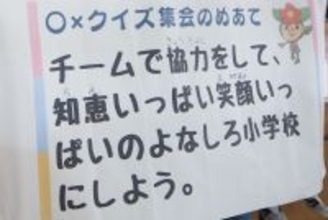 ○×クイズ集会のめあて
チームで協力をして、
知恵いっぱい笑顔いっ
ぱいのよなしろ小学校
にしよう。